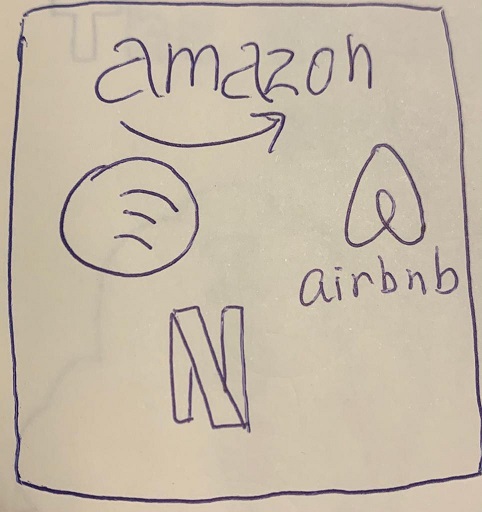 amazon
airbnb
N